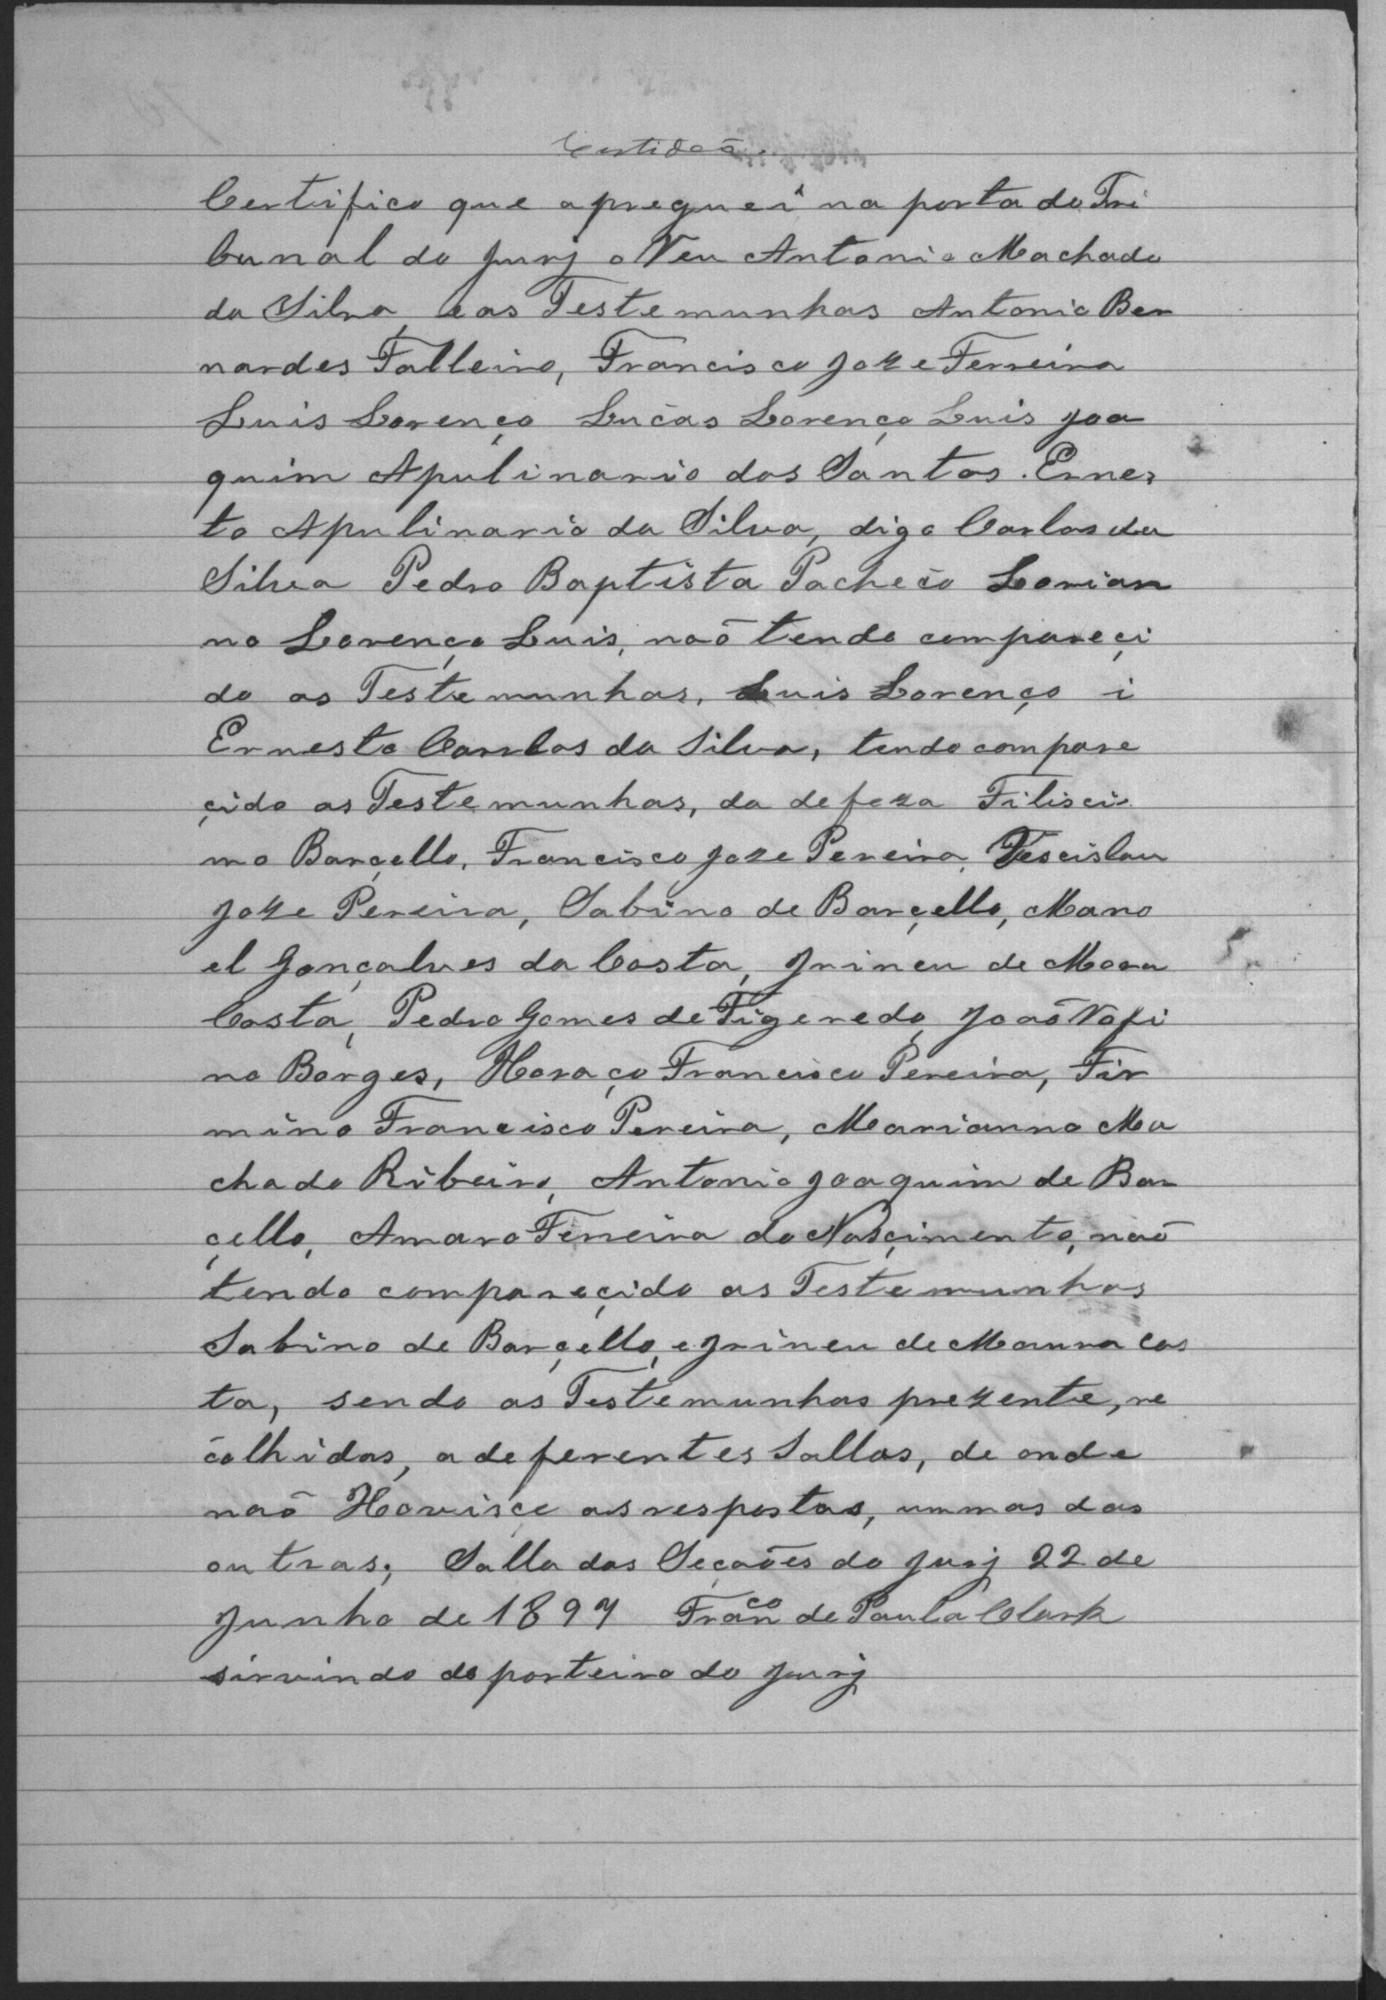 Certidaõ.
Certifico que apreguei na porta do Tri
bunal do Jurj o Reu Antonio Machado
da Silva, e as Testemunhas Antonio Ber
nardes Falleiro, Francisco Joze Ferreira
Luis Lorenço Lucas Lorenço Luis Joa
quim Apulinario dos Santos. Ernes
to Apulinario da Silva, digo Carlos da
Silva Pedro Baptista Pacheco Lorian
no Lorenço Luis, naõ tendo compareçi
do as Testemunhas, Luis Lorenço i
Ernesto Carlos da Silva, tendo compare
çido as Testemunhas, da defeza Filisci
mo Barçello, Francisco Joze Pereira, Vescislau
Joze Pereira, Sabino de Barçello, Mano
el Gonçalves da Costa, Jrineu de Moura
Costa, Pedro Gomes de Figeredo, Joaõ Rofi
no Borges, Horaço Francisco Pereira, Fir
mino Francisco Pereira, Marianno Ma
chado Ribeiro, Antonio Joaquim de Bar
çello, Amaro Ferreira do Nasçimento, naõ
tendo compareçido as Testemunhas
Sabino de Barçello, e Jrineu de Moura Cos
ta, sendo as Testemunhas prezente, re
colhidas, a deferentes Sallas, de onde
naõ Hovisce as respostas, ummas das
outras; Salla das Seçaões do Jurj 22 de
Junho de 1897 Franco de Paula Clark
sirvindo de porteiro do Jurj